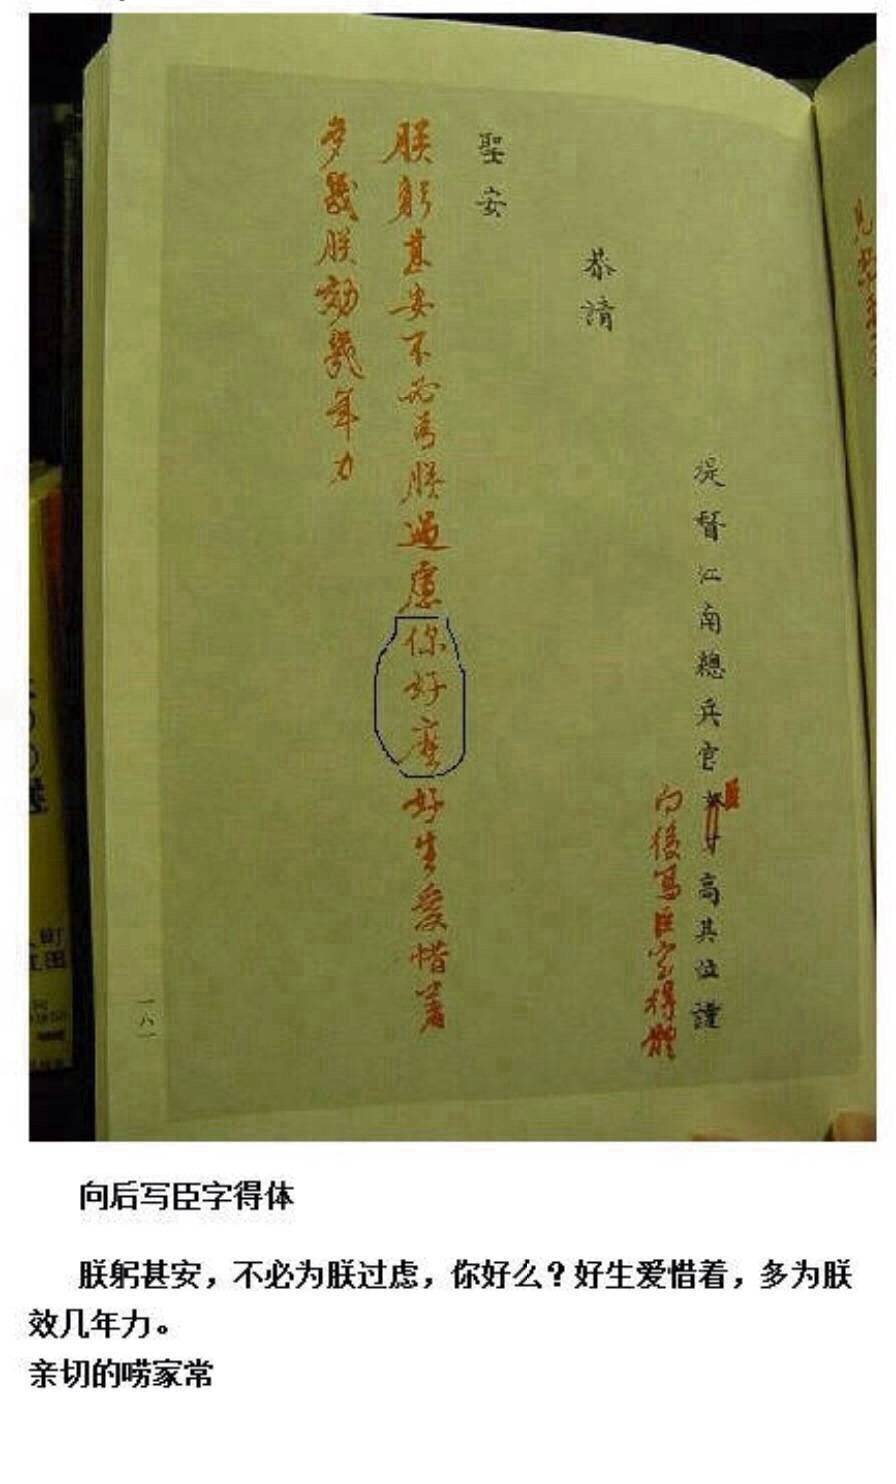 提督江南總兵官奴才高其位謹
臣
向後寫臣字得體
恭請
聖安
朕躬甚安不必為朕過慮你好麼好生愛惜著
多朕効幾年力
一八一
向后写臣字得体
朕躬甚安，不必为朕过虑，你好么？好生爱惜着，多为朕
效几年力。
亲切的唠家常